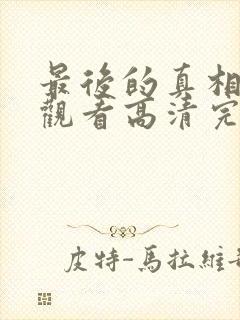 最後的真相
觀看高清完
皮特-馬拉維